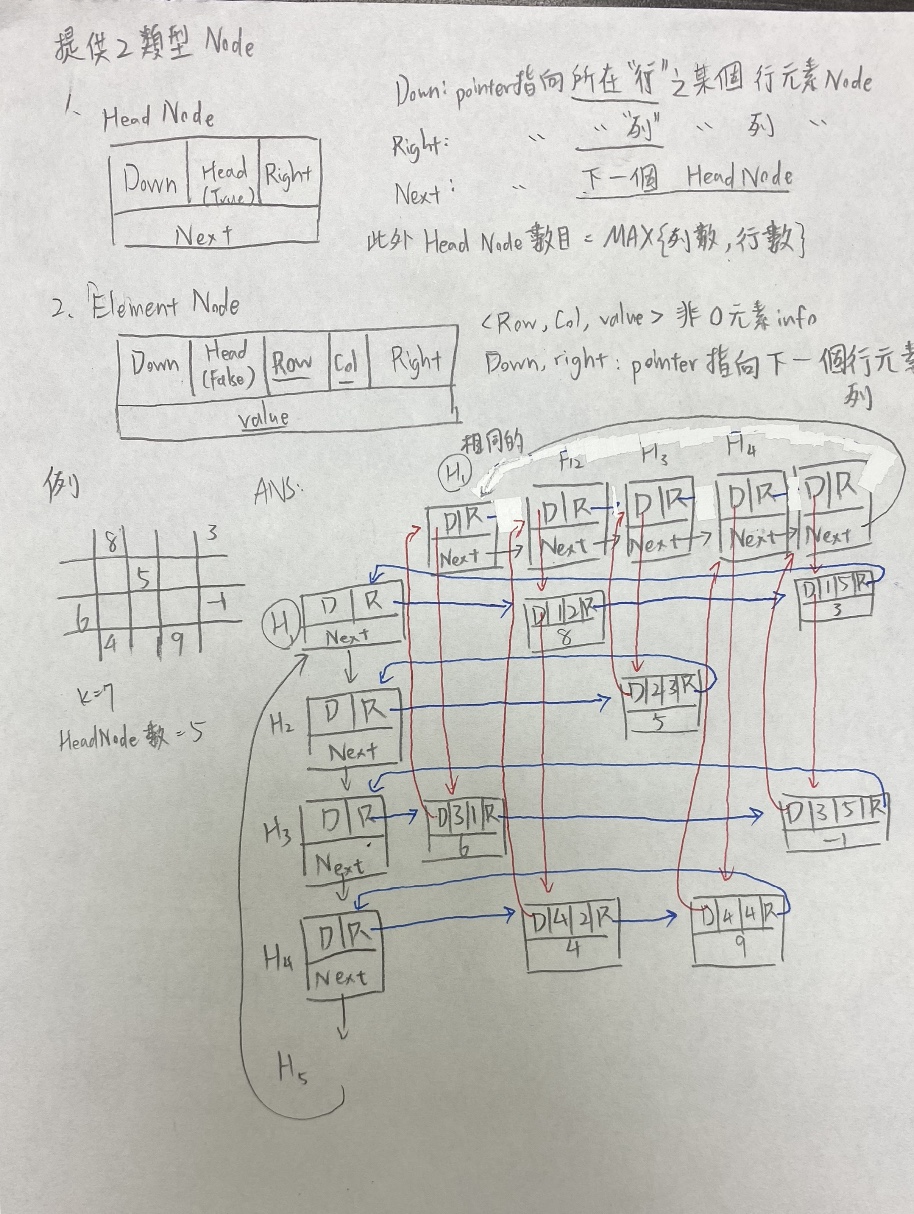 提供2類型 Node
1、 Head Node
Down Head (True) Right
Next
Down: pointer指向所在"行"之某個 行元素Node
Right: 〃 〃"列" 〃 列 〃
Next: 〃 下一個 HeadNode
此外 Head Node 數目 = MAX{列數,行數}
2、Element Node
Down Head (False) Row Col Right
value
<Row, Col, value> 非0元素info
Down, right : pointer 指向下一個行元素
列
例
ANS:
相同的
H1 H2 H3 H4
D R D R D R D R D R
Next Next Next Next Next
8 3
5
6 -1
4 9
k=7
HeadNode 數 = 5
H1 D R
Next
D 1 2 R
8
D 1 5 R
3
H2 D R
Next
D 2 3 R
5
H3 D R
Next
D 3 1 R
6
D 3 5 R
-1
H4 D R
Next
D 4 2 R
4
D 4 4 R
9
H5